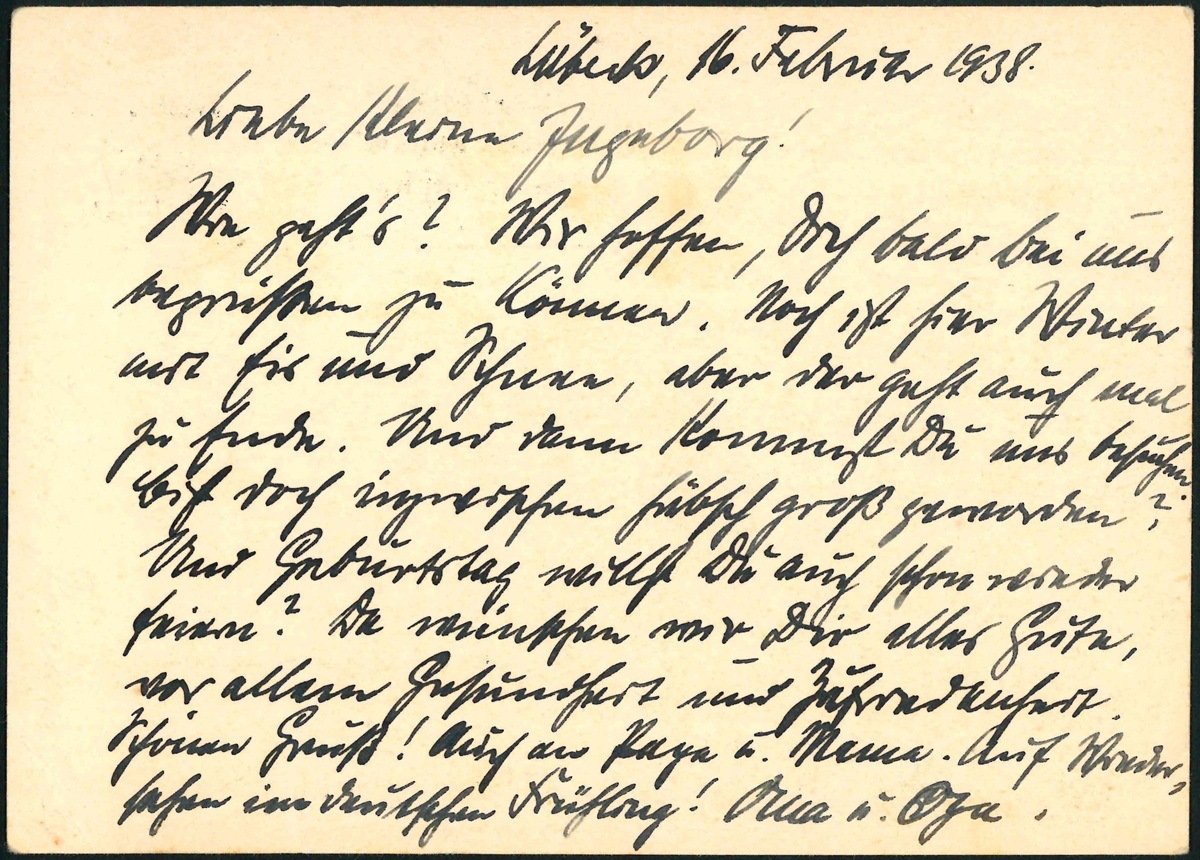 Lübeck, 16. Februar 1938.
Liebe kleine Ingeborg!
Wie geht's? Wir hoffen, Dich bald bei uns
begrüßen zu können. Noch ist hier Winter
mit Eis und Schnee, aber der geht auch mal
zu Ende. Und dann kommst Du uns besuchen.
Bist doch inzwischen hübsch groß geworden?
Und Geburtstag willst Du auch schon wieder
feiern? Da wünschen wir Dir alles Gute,
vor allem Gesundheit und Zufriedenheit.
Schönen Gruß! Auch an Papa u. Mama. Auf Wieder-
sehen im deutschen Frühling! Oma u. Opa.